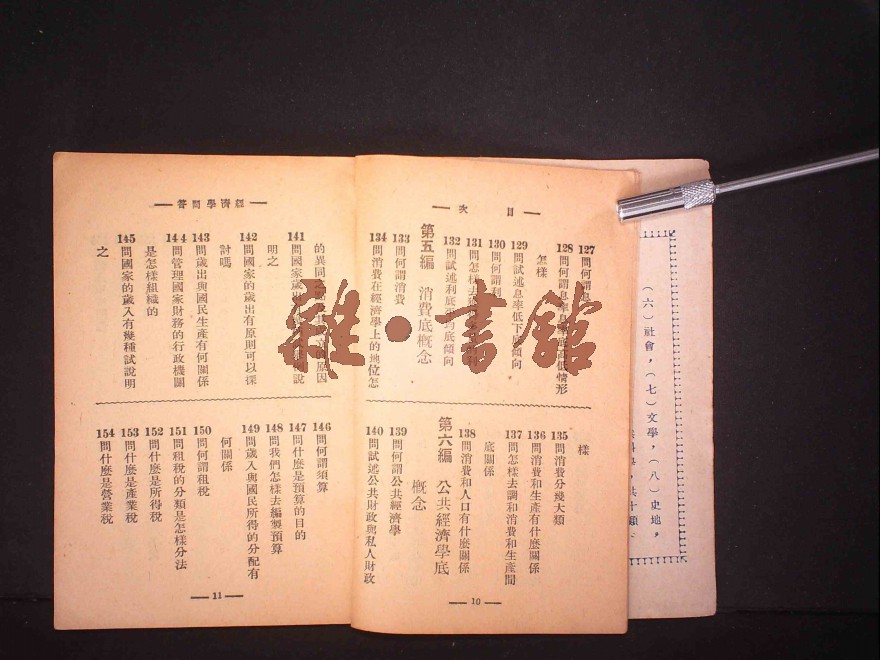 目次
127問何謂息
128問何謂息率息率底高低情形
怎樣
129問試述息率低下底傾向
130問何謂利
131問怎樣去
132問試述利底
底傾向
第五編 消費底概念
133問何謂消費
134問消費在經濟學上的地位怎
樣
135問消費分幾大類
136問消費和生產有什麼關係
137問怎樣去調和消費和生產間
底關係
138問消費和人口有什麼關係
第六編 公共經濟學底
概念
139問何謂公共經濟學
140問試述公共財政與私人財政
10
經濟學問答
的異同之
原因
141問國家歲出
說
明之
142問國家的歲出有原則可以探
討嗎
143問歲出與國民生產有何關係
144問管理國家財務的行政機關
是怎樣組織的
145問國家的歲入有幾種試說明
之
146問何謂預算
147問什麼是預算的目的
148問我們怎樣去編製預算
149問歲入與國民所得的分配有
何關係
150問何謂租稅
151問租稅的分類是怎樣分法
152問什麼是所得稅
153問什麼是產業稅
154問什麼是營業稅
11
(六)社會,(七)文學,(八)史地,
共十類
雜·書館